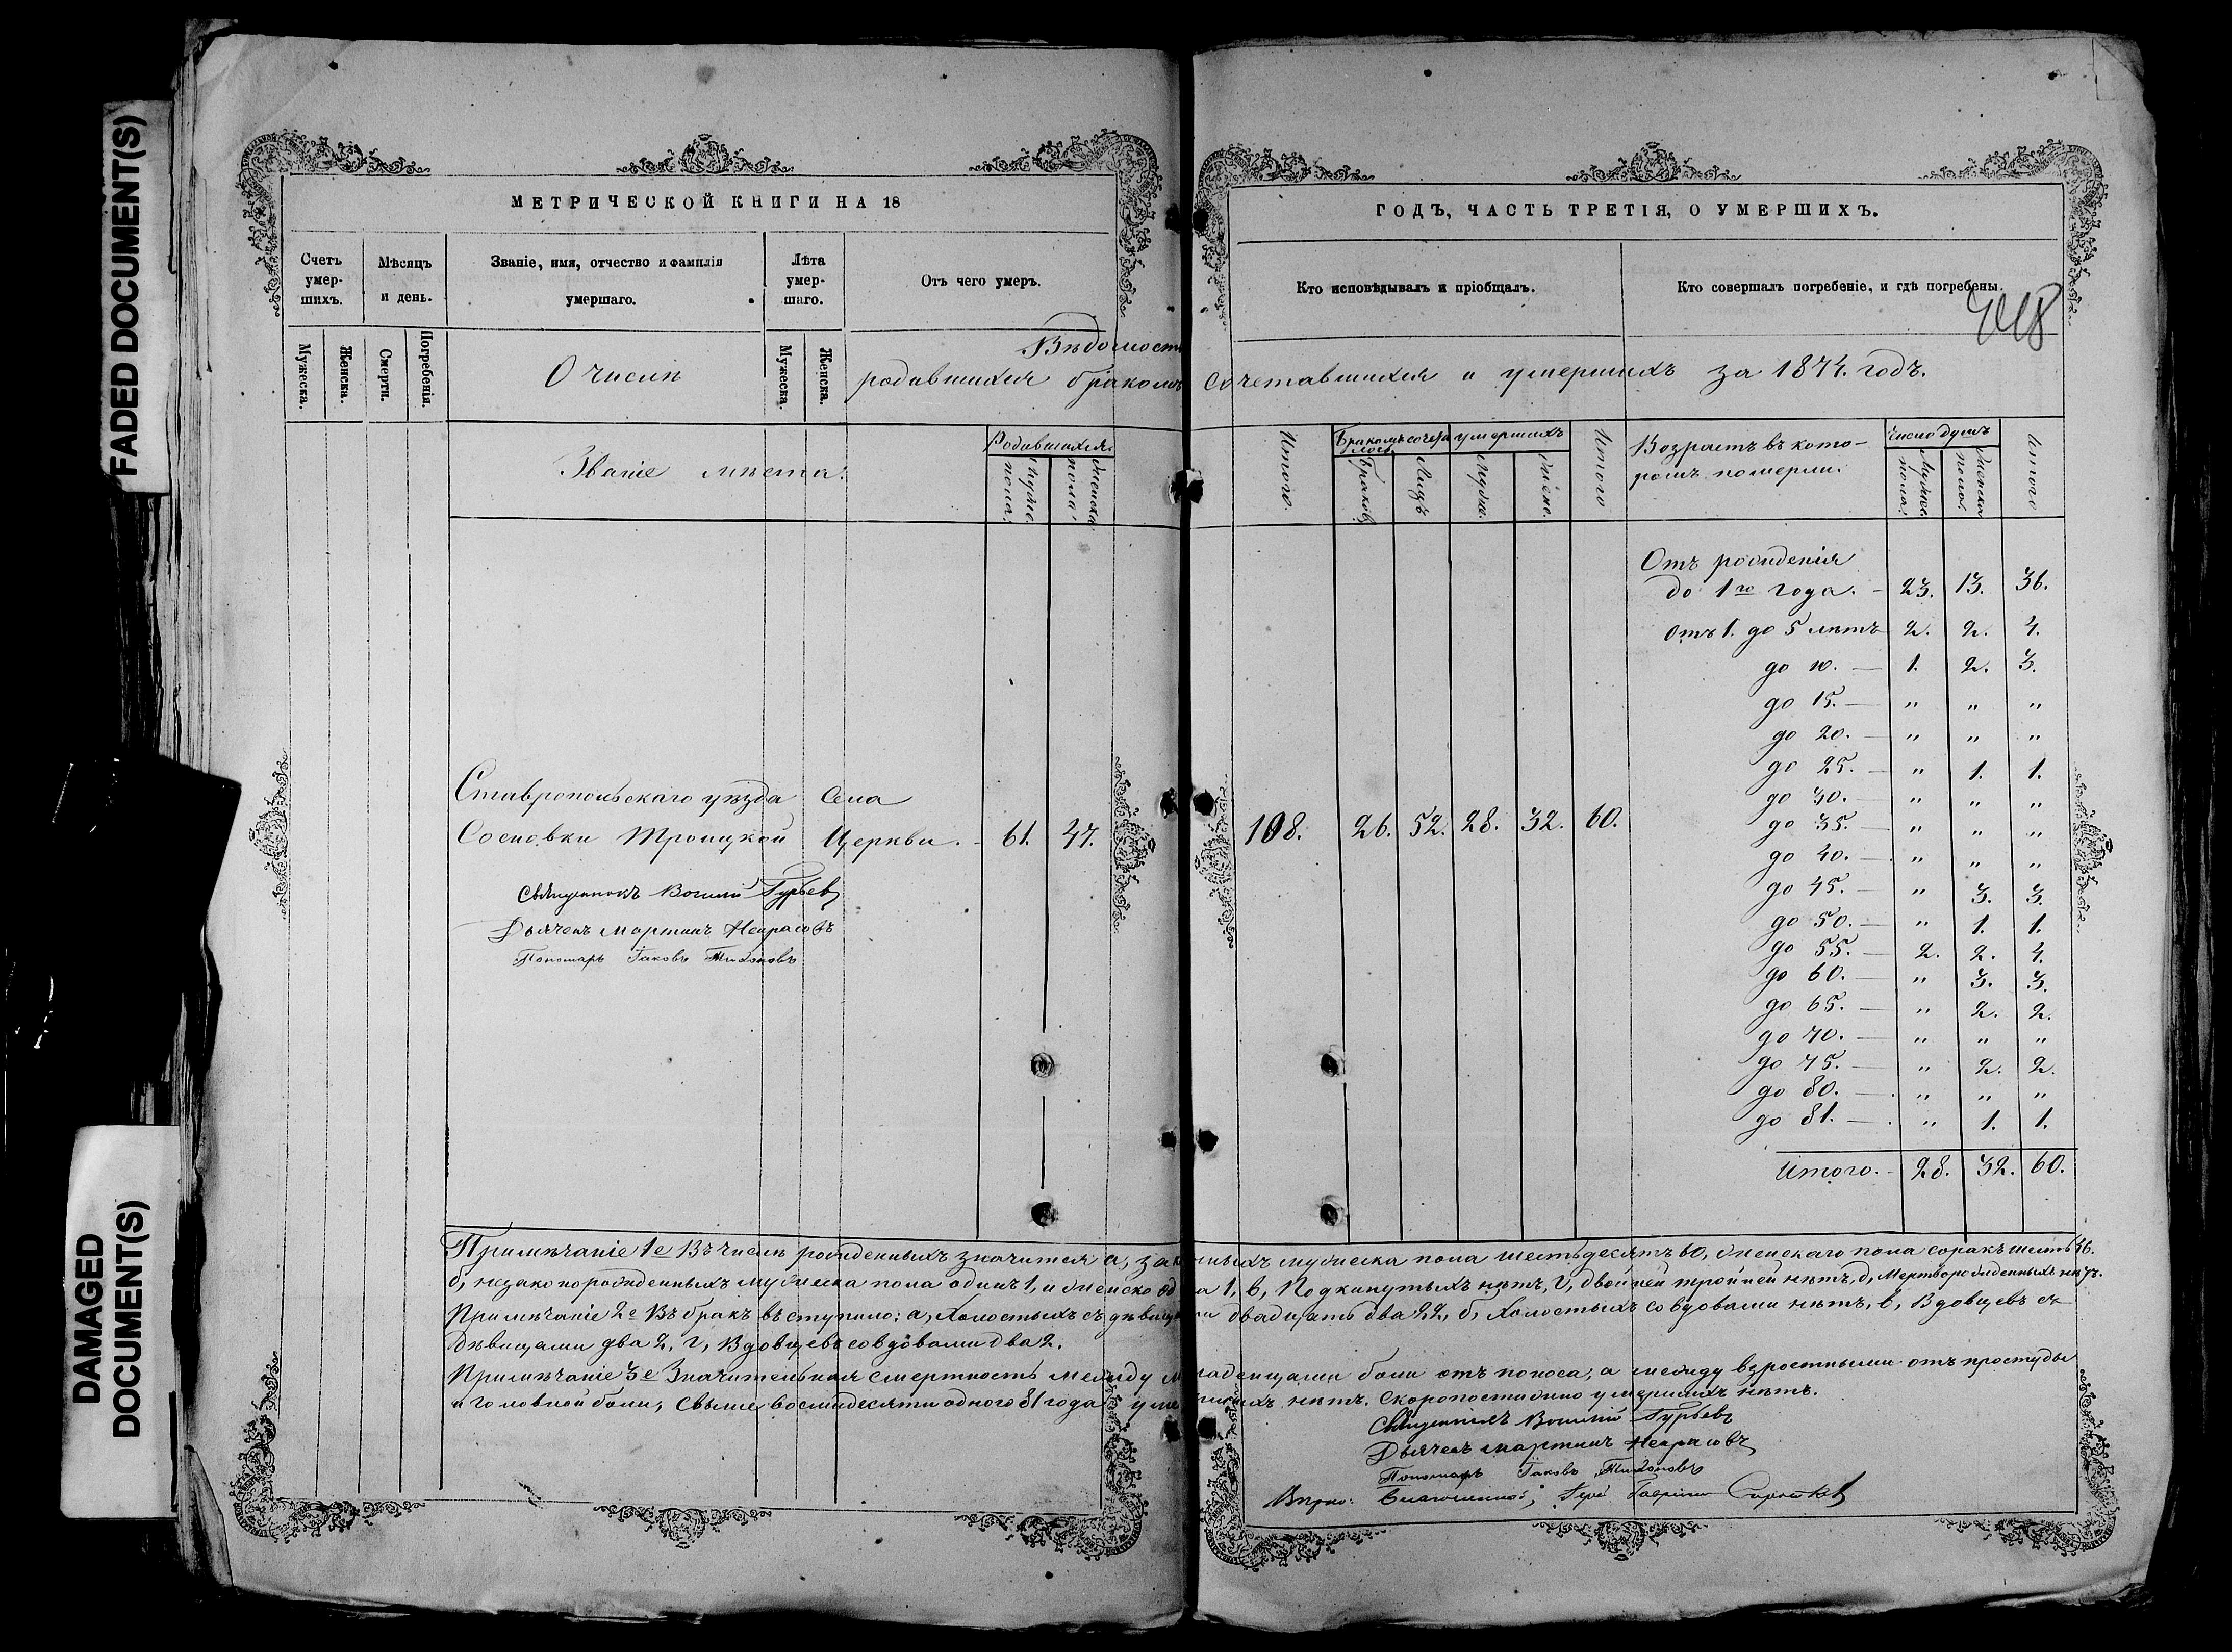 FADED DOCUMENT(S)
DAMAGED
DOCUMENT(S)
МЕТРИЧЕСКОЙ КНИГИ НА 18
Счетъ
умер-
шихъ.
Мѣсяцъ
и день.
Званіе, имя, отчество и фамилія
умершаго.
Лѣта
умер-
шаго.
Отъ чего умеръ.
Мужеска.
Женска.
Смерти.
Погребенія.
Мужеска.
Женска.
ГОДЪ, ЧАСТЬ ТРЕТІЯ, О УМЕРШИХЪ.
Кто исповѣдывалъ и пріобщалъ.
Кто совершалъ погребеніе, и гдѣ погребены.
Вѣдомость
О числѣ родившихся бракомъ сочетавшихся и умершихъ за 1874. годъ.
Званіе мѣста.
Родившихся
Мужеска
пола.
Женска
пола.
Итого.
Бракомъ сочета
лось
Браков.
Лицъ
умершихъ
Мужес.
Женс.
Итого
Возрастъ въ кото-
ромъ померли.
Число душъ
Мужес.
пола.
Женска
пола.
Итого
Отъ рожденія
до 1го года. - 23. 13. 36.
Отъ 1. до 5 лѣтъ 2. 2. 4.
до 10. — 1. 2. 3.
до 15. — " " "
до 20. — " " "
до 25. — " 1. 1.
до 30. — " " "
до 35. — " " "
до 40. — " " "
до 45. — " 3. 3.
до 50. — " 1. 1.
до 55. — 2. 2. 4.
до 60. — " 3. 3.
до 65. — " 2. 2.
до 70. — " " "
до 75. — " 2. 2.
до 80. — " " "
до 81. — " 1. 1.
Итого. - 28. 32. 60.
Ставропольскаго уѣзда Села
Сосновки Троицкой Церкви. - 61. 47. 108. 26. 52. 28. 32. 60.
Священникъ Василій Гурьев
Дьячекъ Мартинъ Некрасовъ
Пономарь Іаковъ Тихоновъ
Примѣчаніе 1е Въ числѣ рожденныхъ значится а, законныхъ мужеска пола шестьдесятъ 60, женскаго пола сорокъ шесть 46.
б, незаконорожденныхъ мужеска пола одинъ 1, и женско одна 1, в, Подкинутыхъ нѣтъ, г, двойней тройней нѣтъ, д, Мертворожденныхъ нѣтъ.
Примѣчаніе 2е Въ бракъ вступило: а, Холостыхъ съ дѣвицами двадцать два 22, б, Холостыхъ со вдовами нѣтъ, в, Вдовцевъ съ
дѣвицами два 2, г, Вдовцевъ со вдовами два 2.
Примѣчаніе 3е Значительная смертность между младенцами была отъ поноса, а между взрослыми отъ простуды
и головной боли, Свыше восмидесяти одного 81 года умершихъ нѣтъ. Скоропостижно умершихъ нѣтъ.
Священникъ Василій Гурьев
Дьячекъ Мартинъ Некрасовъ
Пономарь Іаковъ Тихоновъ
Благочинный, Іерей Гавріилъ